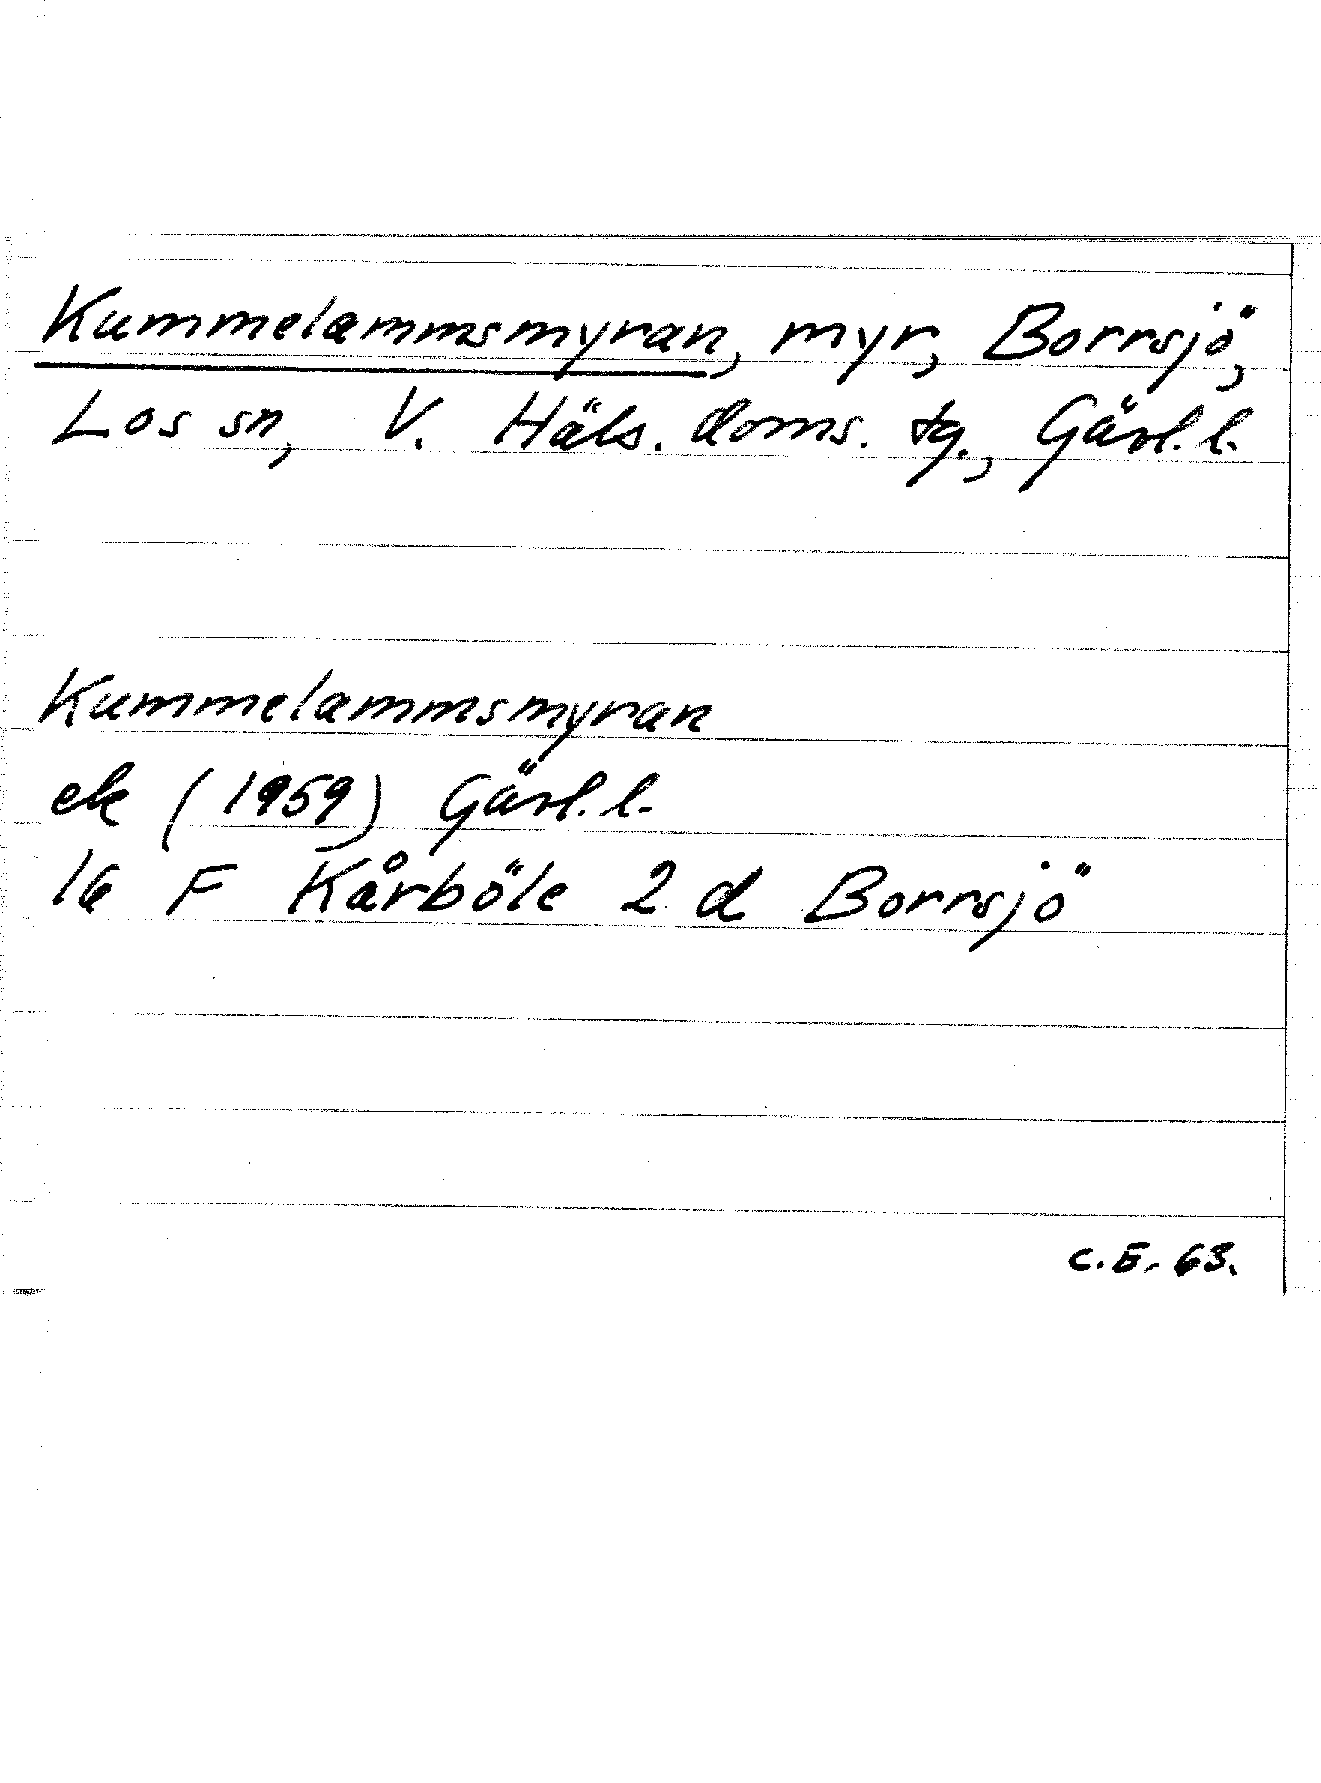 Kummelammsmyran, myr, Borrsjö,
Los sn, V. Häls. doms. tg., Gävl. l.
Kummelammsmyran
ek (1959) Gävl. l.
16 F Kårböle 2 d Borrsjö
C.E. 63.